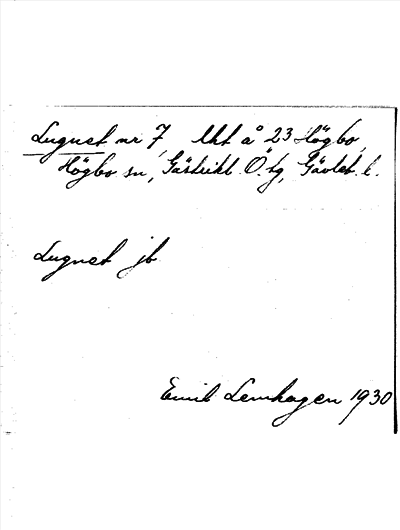 Lugnet nr 7, lht å 23 Högbo,
Högbo sn, Gästrikl. Ö. tg, Gävleb. l.
Lugnet jb
Emil Lemhagen 1930